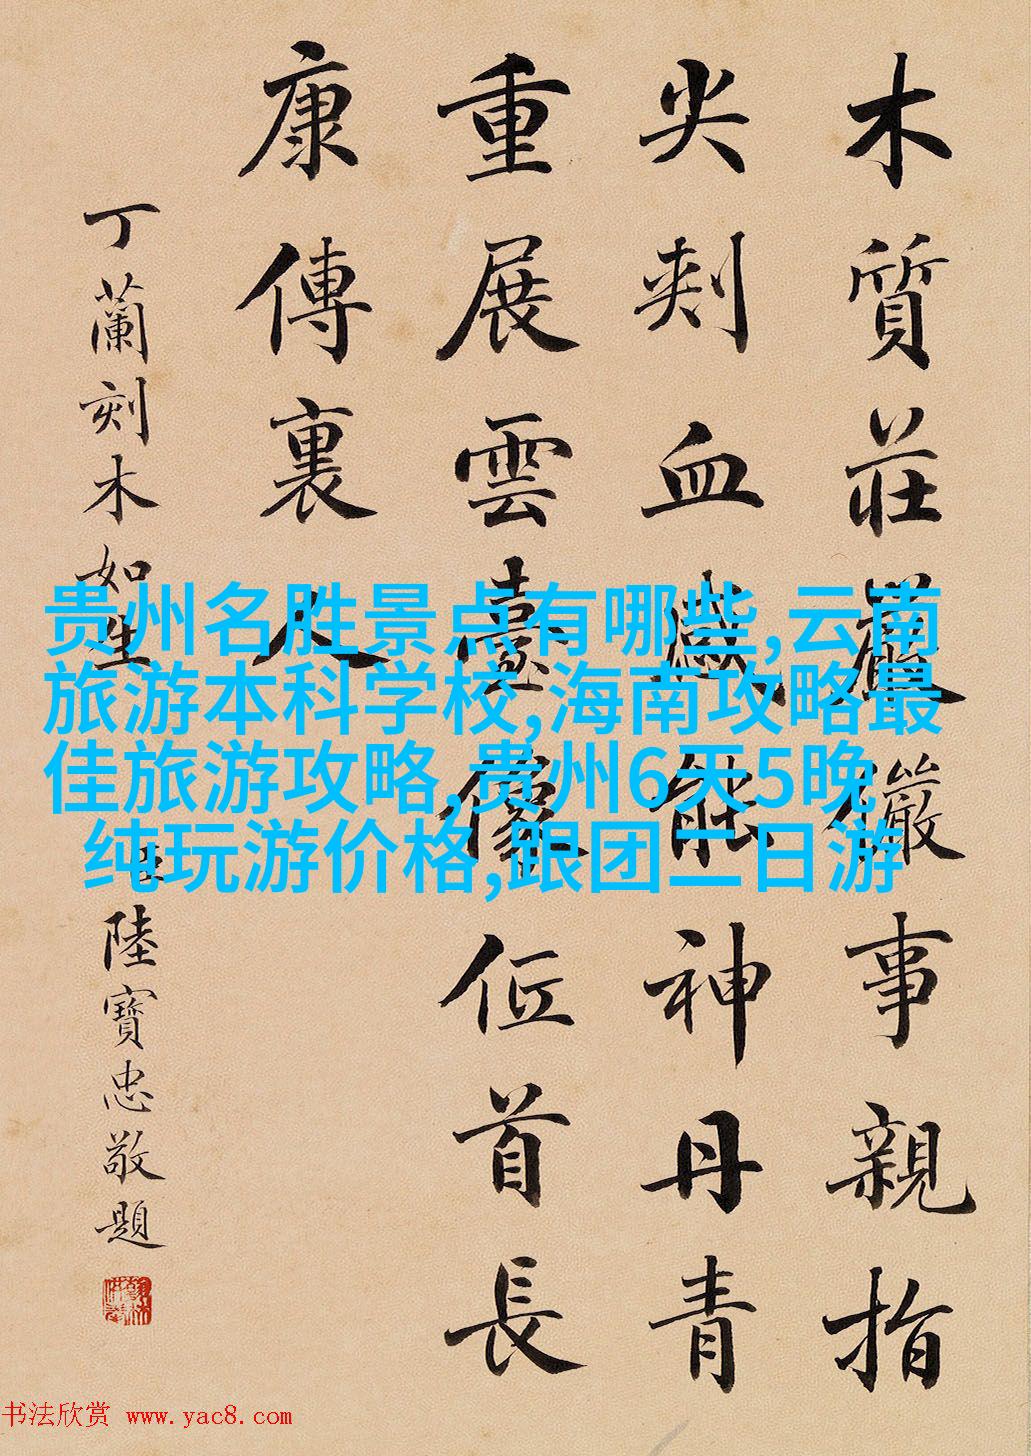 木質莊嚴儼事親指
尖刺血感能神丹青
重展雲臺像首長
康傳裏人
丁蘭刻木如生
陸寶忠敬題
贵州名胜景点有哪些,云南
旅游本科学校,海南攻略最
佳旅游攻略,贵州6天5晚
纯玩游价格,跟团二日游
书法欣赏 www.yac8.com